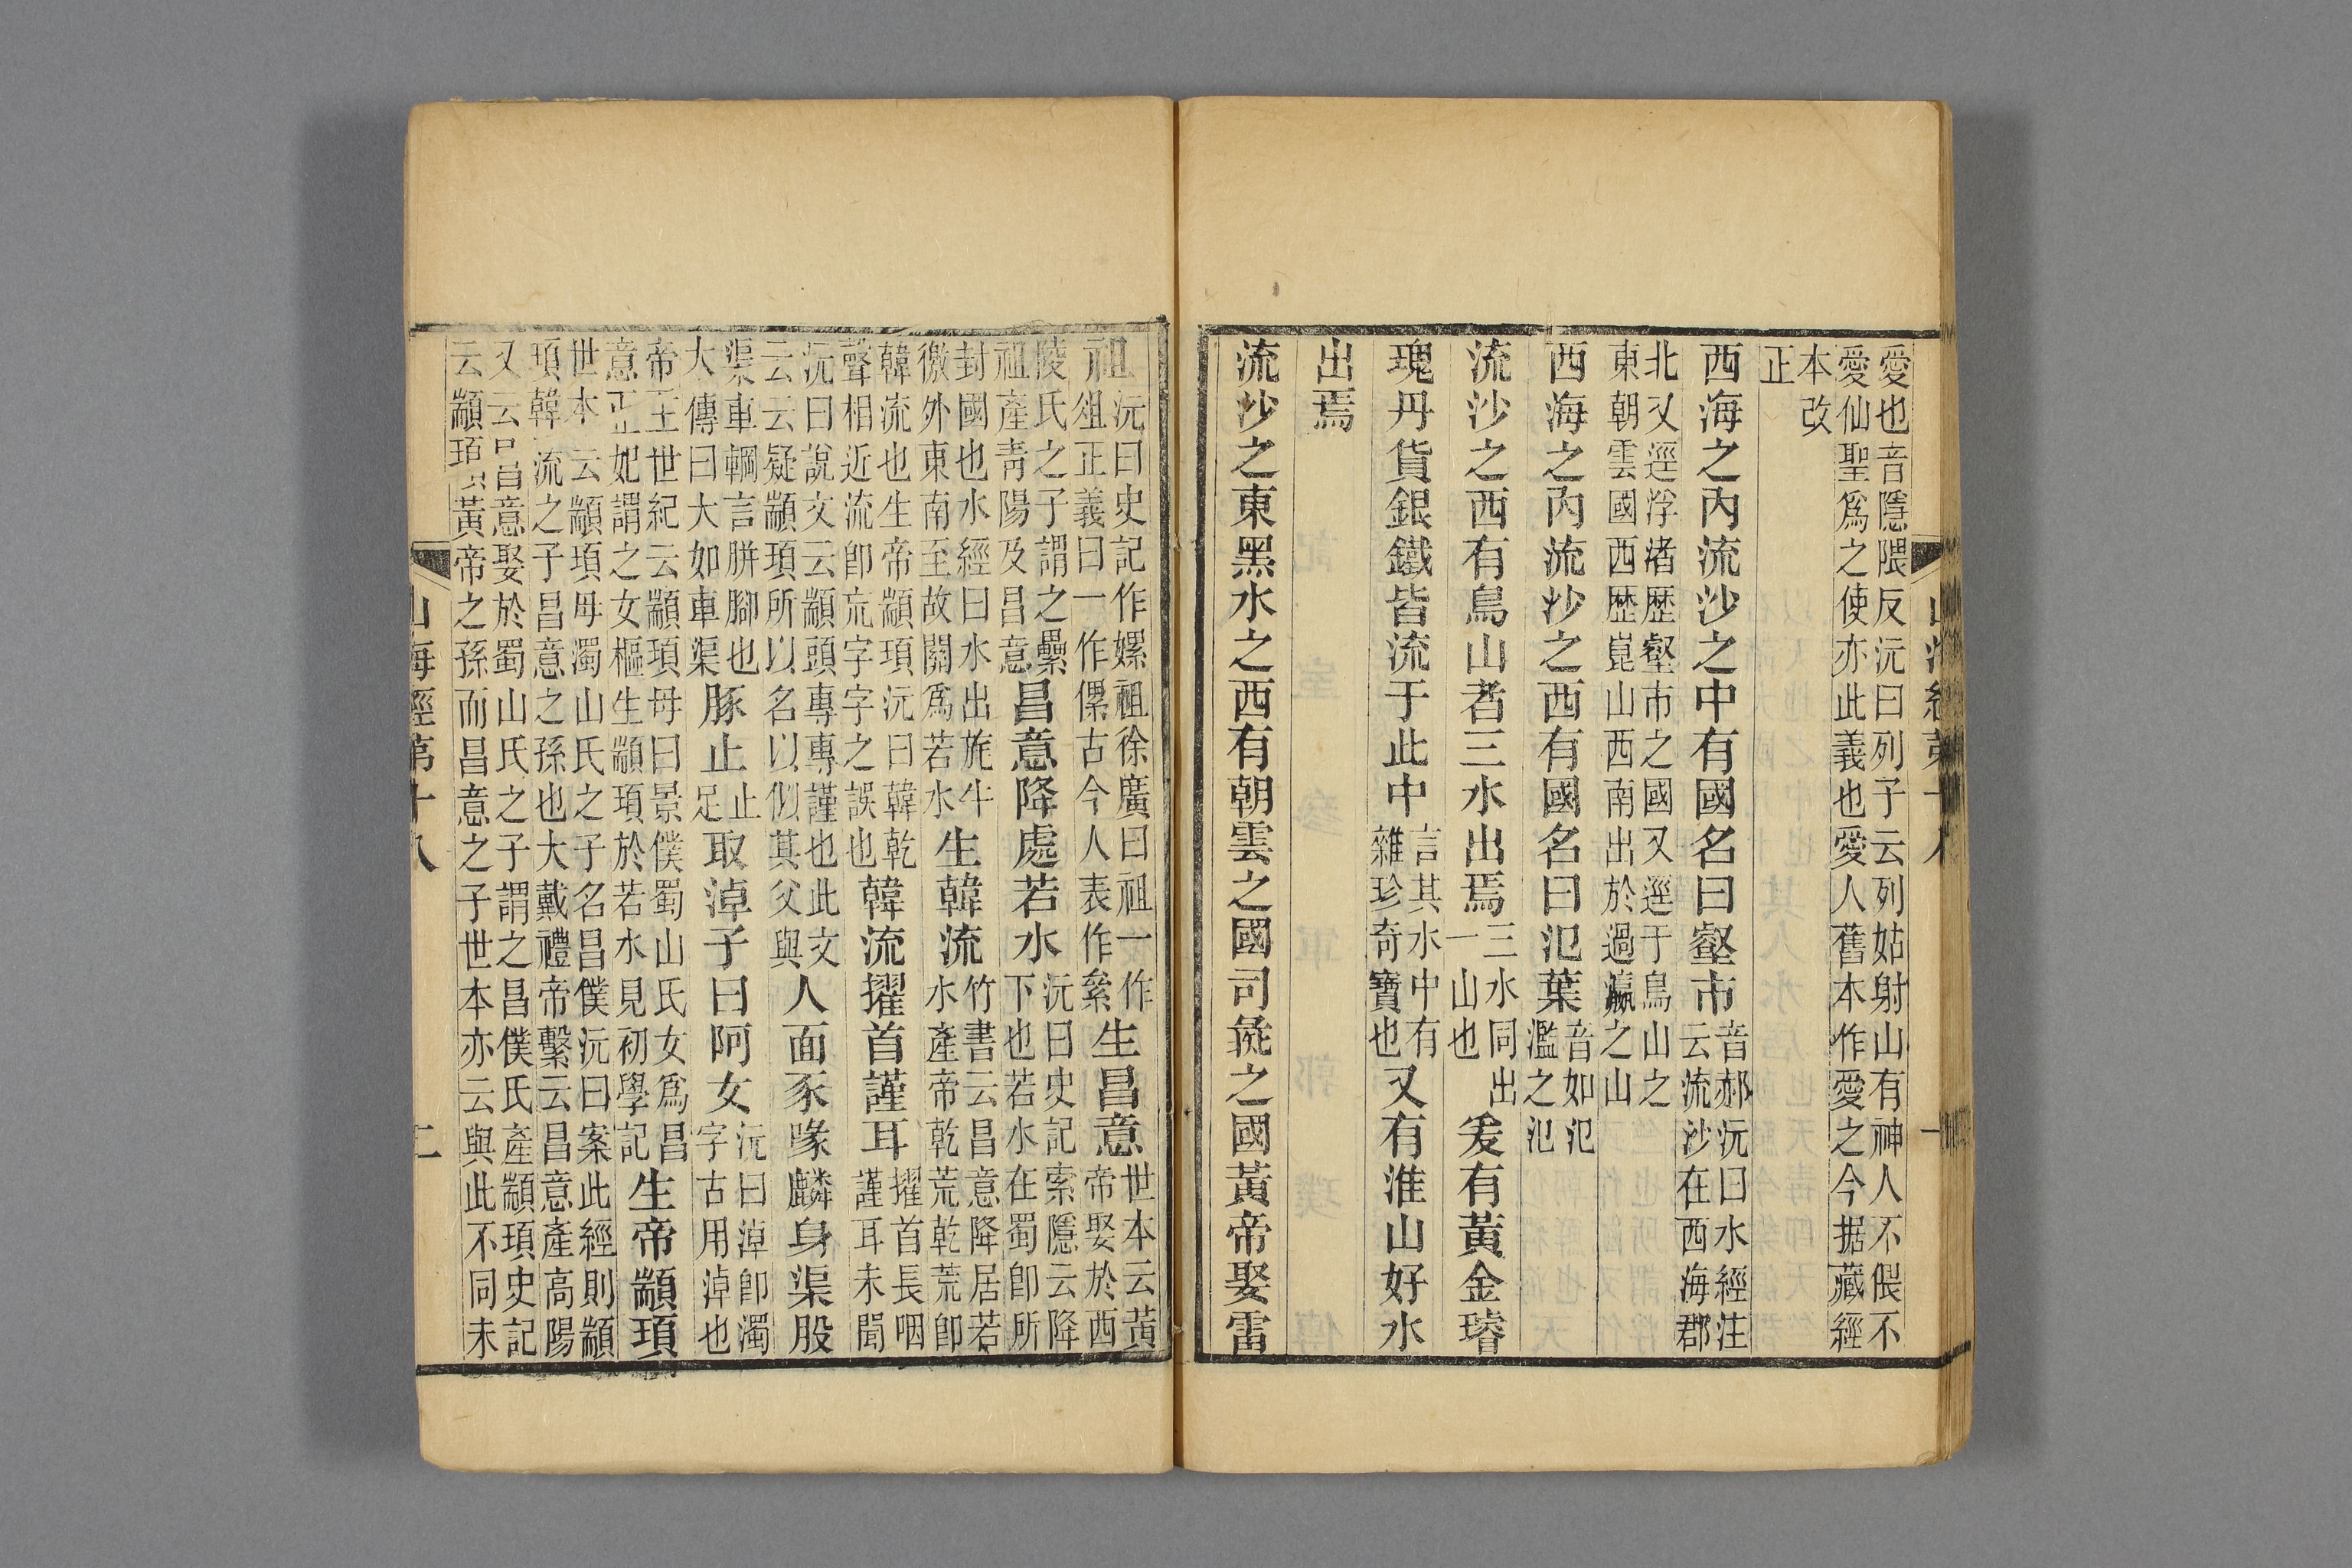 愛也音隱隈反沅曰列子云列姑射山有神人不偎不
愛仙聖爲之使亦此義也愛人舊本作愛之今据藏經
本改
正
西海之內流沙之中有國名曰壑市音郝沅曰水經注云流沙在西海郡
北又逕浮渚歷壑市之國又逕于鳥山之
東朝雲國西歷崑山西南出於過瀛之山
西海之內流沙之西有國名曰氾葉音如氾濫之氾
流沙之西有鳥山者三水出焉三水同出一山也爰有黃金璿
瑰丹貨銀鐵皆流于此中言其水中有雜珍奇寶也又有淮山好水
出焉
流沙之東黑水之西有朝雲之國司彘之國黃帝娶雷
祖沅曰史記作嫘祖徐廣曰祖一作俎正義曰一作傫古今人表作絫生昌意世本云黃帝娶於西
陵氏之子謂之纍祖產青陽及昌意昌意降處若水沅曰史記索隱云降下也若水在蜀卽所
封國也水經曰水出旄牛徼外東南至故關爲若水生韓流竹書云昌意降居若水產帝乾荒乾荒卽
韓流也生帝顓頊沅曰韓乾聲相近流卽㐬字字之誤也韓流擢首謹耳擢首長咽謹耳未聞
沅曰說文云顓頭專專謹也此文云云疑顓頊所以名以似其父與人面豕喙麟身渠股
渠車輞言胼腳也大傳曰大如車渠豚止止足取淖子曰阿女沅曰淖卽濁字古用淖也
帝王世紀云顓頊母曰景僕蜀山氏女爲昌意正妃謂之女樞生顓頊於若水見初學記生帝顓頊
世本云顓頊母濁山氏之子名昌僕沅曰案此經則顓
頊韓流之子昌意之孫也大戴禮帝繫云昌意產高陽
又云昌意娶於蜀山氏之子謂之昌僕氏產顓頊史記
云顓頊黃帝之孫而昌意之子世本亦云與此不同未
山海經第十八 二